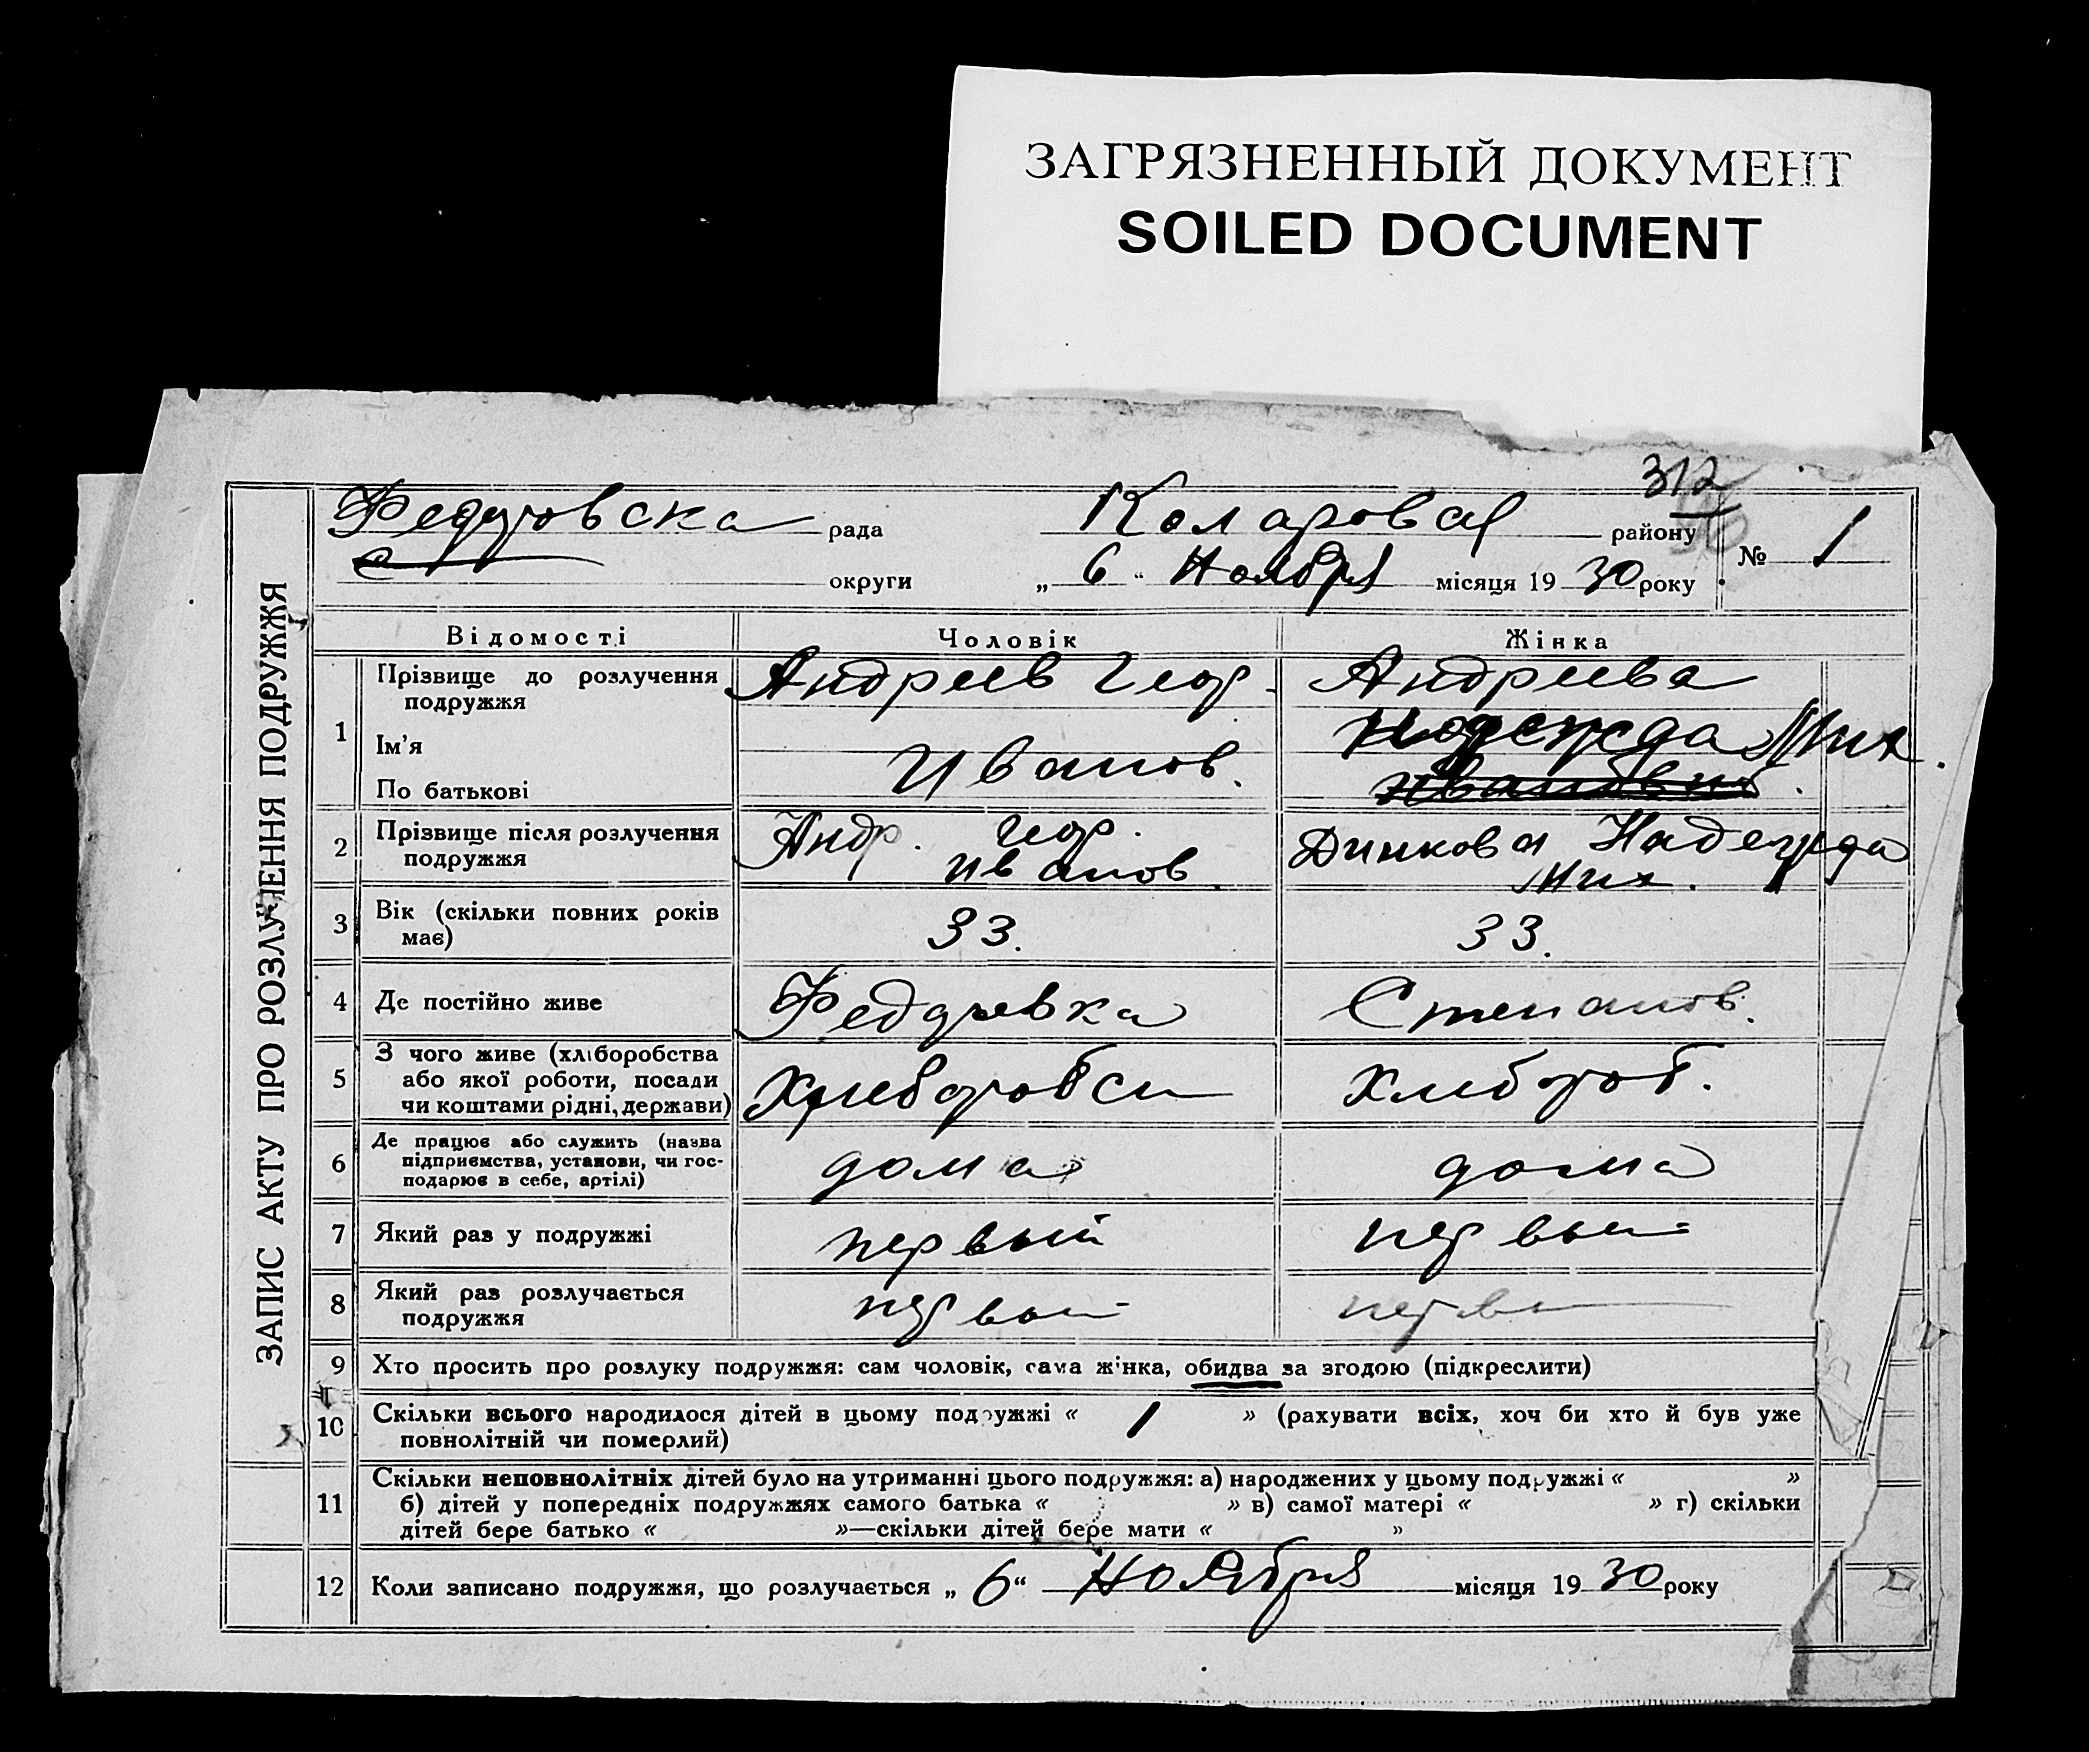 ЗАГРЯЗНЕННЫЙ ДОКУМЕНТ
SOILED DOCUMENT
312
ЗАПИС АКТУ ПРО РОЗЛУЧЕННЯ ПОДРУЖЖЯ
Федоровска рада Коларовс району
округи „ 6 “ Ноября місяця 19 30 року
№ 1
Відомості Чоловік Жінка
1 Прізвище до розлучення подружжя Андреев Геор. Андреева
Ім'я Надежда Мих.
По батькові Иванов.
2 Прізвище після розлучення Андр. Геор. Динкова Надежда
подружжя Иванов Мих.
3 Вік (скільки повних років 33. 33.
має)
4 Де постійно живе Федоровка Степанов.
5 З чого живе (хліборобства
або якої роботи, посади Хлеборобси Хлибороб.
чи коштами рідні, держави)
6 Де працює або служить (назва
підприємства, установи, чи гос- дома дома
подарює в себе, артілі)
7 Який раз у подружжі первый первый
8 Який раз розлучається первый первы
подружжя
9 Хто просить про розлуку подружжя: сам чоловік, сама жінка, обидва за згодою (підкреслити)
10 Скільки всього народилося дітей в цьому подружжі « 1 » (рахувати всіх, хоч би хто й був уже
повнолітній чи померлий)
11 Скільки неповнолітніх дітей було на утриманні цього подружжя: а) народжених у цьому подружжі « »
б) дітей у попередніх подружжях самого батька « » в) самої матері « » г) скільки
дітей бере батько « »—скільки дітей бере мати « »
12 Коли записано подружжя, що розлучається „ 6 “ Ноября місяця 19 30 року